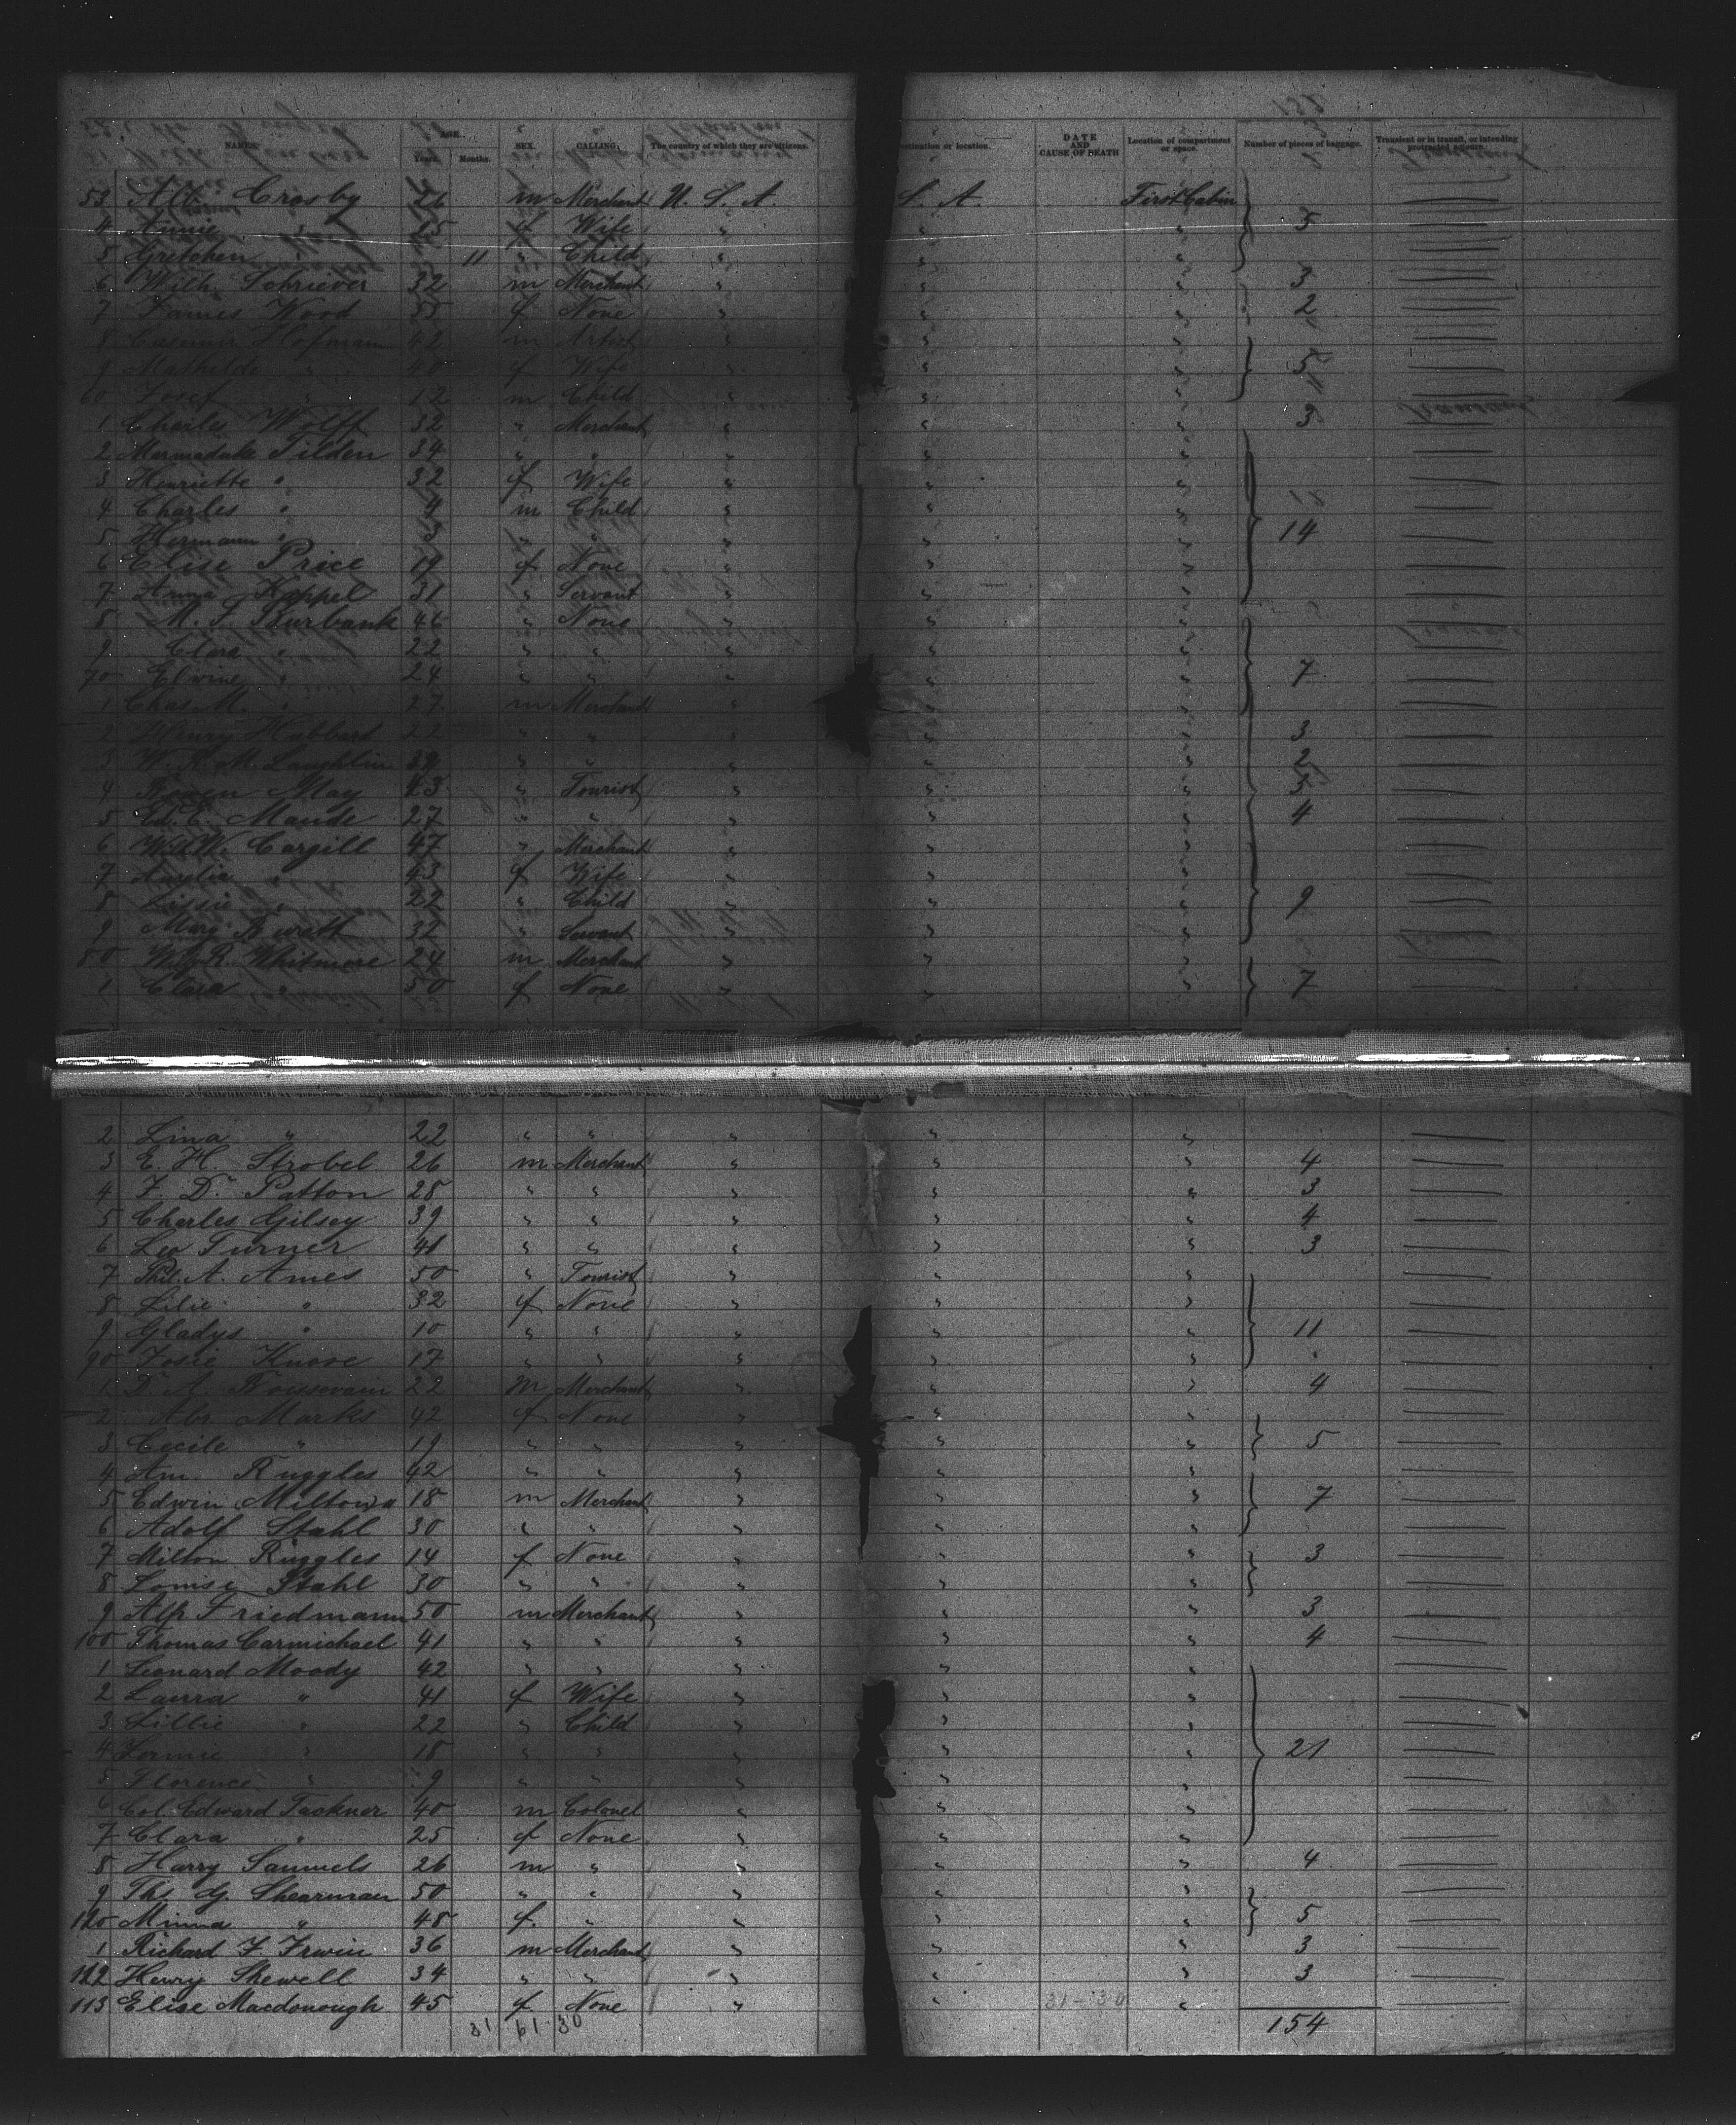 152
NAMES. AGE. Years. Months. SEX. CALLING. The country of which they are citizens. destination or location. DATE AND CAUSE OF DEATH Location of compartment or space. Number of pieces of baggage. Transient or in transit, or intending protracted sojourn.
53 Alb. Crosby 26 m Merchant U. S. A. S. A. First Cabin
4 Annie " 25 f Wife " " " 5
5 Gretchen " 11 " Child " " "
6 Wilh. Schriever 32 m Merchant " " " 3
7 Fannies Wood 55 f None " " " 2
8 Casimir Hofmann 42 m Artist " " "
9 Mathilde " 40 f Wife " " " 5
60 Josef " 12 m Child " " "
1 Charles Wolff 32 " Merchant " " " 3
2 Marmaduke Tilden 34 " " " " "
3 Henriette " 32 f Wife " " "
4 Charles " 4 m Child " " "
5 Hermann " 3 " " " " " 14
6 Elise Price 19 f None " " "
7 Anna Kappel 31 " Servant " " "
8 M. S. Burbank 46 " None " " "
9 Clara " 22 " " " " "
70 Elvine " 24 " " " " " 7
1 Chas M. " 27 m Merchant " " "
2 Henry Hubbard 22 " " " " " 3
3 W. K. M. Laughlin 39 " " " " " 2
4 May 43 " Tourist " " "
5 Ed. E. Maude 27 " " " " " 4
6 W. W. Cargill 47 " Merchant " " "
7 " 43 f Wife " " "
8 Lissie " 22 " Child " " " 9
9 Mary 32 " Servant " " "
80 R. Whitmore 24 m Merchant " " "
1 Clara " 50 f None " " " 7
2 Lina " 22 " " " " "
3 E. H. Strobel 26 m Merchant " " " 4
4 F. D. Patton 28 " " " " " 3
5 Charles Gilsey 39 " " " " " 4
6 Leo Turner 41 " " " " " 3
7 A. Ames 50 " Tourist " " "
8 Lilie " 32 f None " " "
9 Gladys " 10 " " " " " 11
90 Josie Knose 17 " " " " "
1 D. A. Boissevain 22 m Merchant " " " 4
2 Abr. Marks 42 f None " " "
3 Cecile " 19 " " " " " 5
4 Am. Ruggles 42 " " " " "
5 Edwin Miltown 18 m Merchant " " " 7
6 Adolf Stahl 30 " " " " "
7 Milton Ruggles 14 f None " " " 3
8 Louise Stahl 30 " " " " "
9 Alf Friedmann 50 m Merchant " " " 3
100 Thomas Carmichael 41 " " " " " 4
1 Leonard Moody 42 " " " " "
2 Laura " 41 f Wife " " "
3 Lillie " 22 " Child " " "
4 " 18 " " " " " 21
5 Florence " 9 " " " " "
6 Col. Edward Tackner 40 m Colonel " " "
7 Clara " 25 f None " " "
8 Harry Samuels 26 m " " " " 4
9 Ths. G. Shearman 50 " " " " "
110 Minna " 48 f " " " " 5
1 Richard F Irwin 36 m Merchant " " " 3
112 Henry Shewell 34 " " " " " 3
113 Elise Macdonough 45 f None " " 31-30 "
31 61-30 154